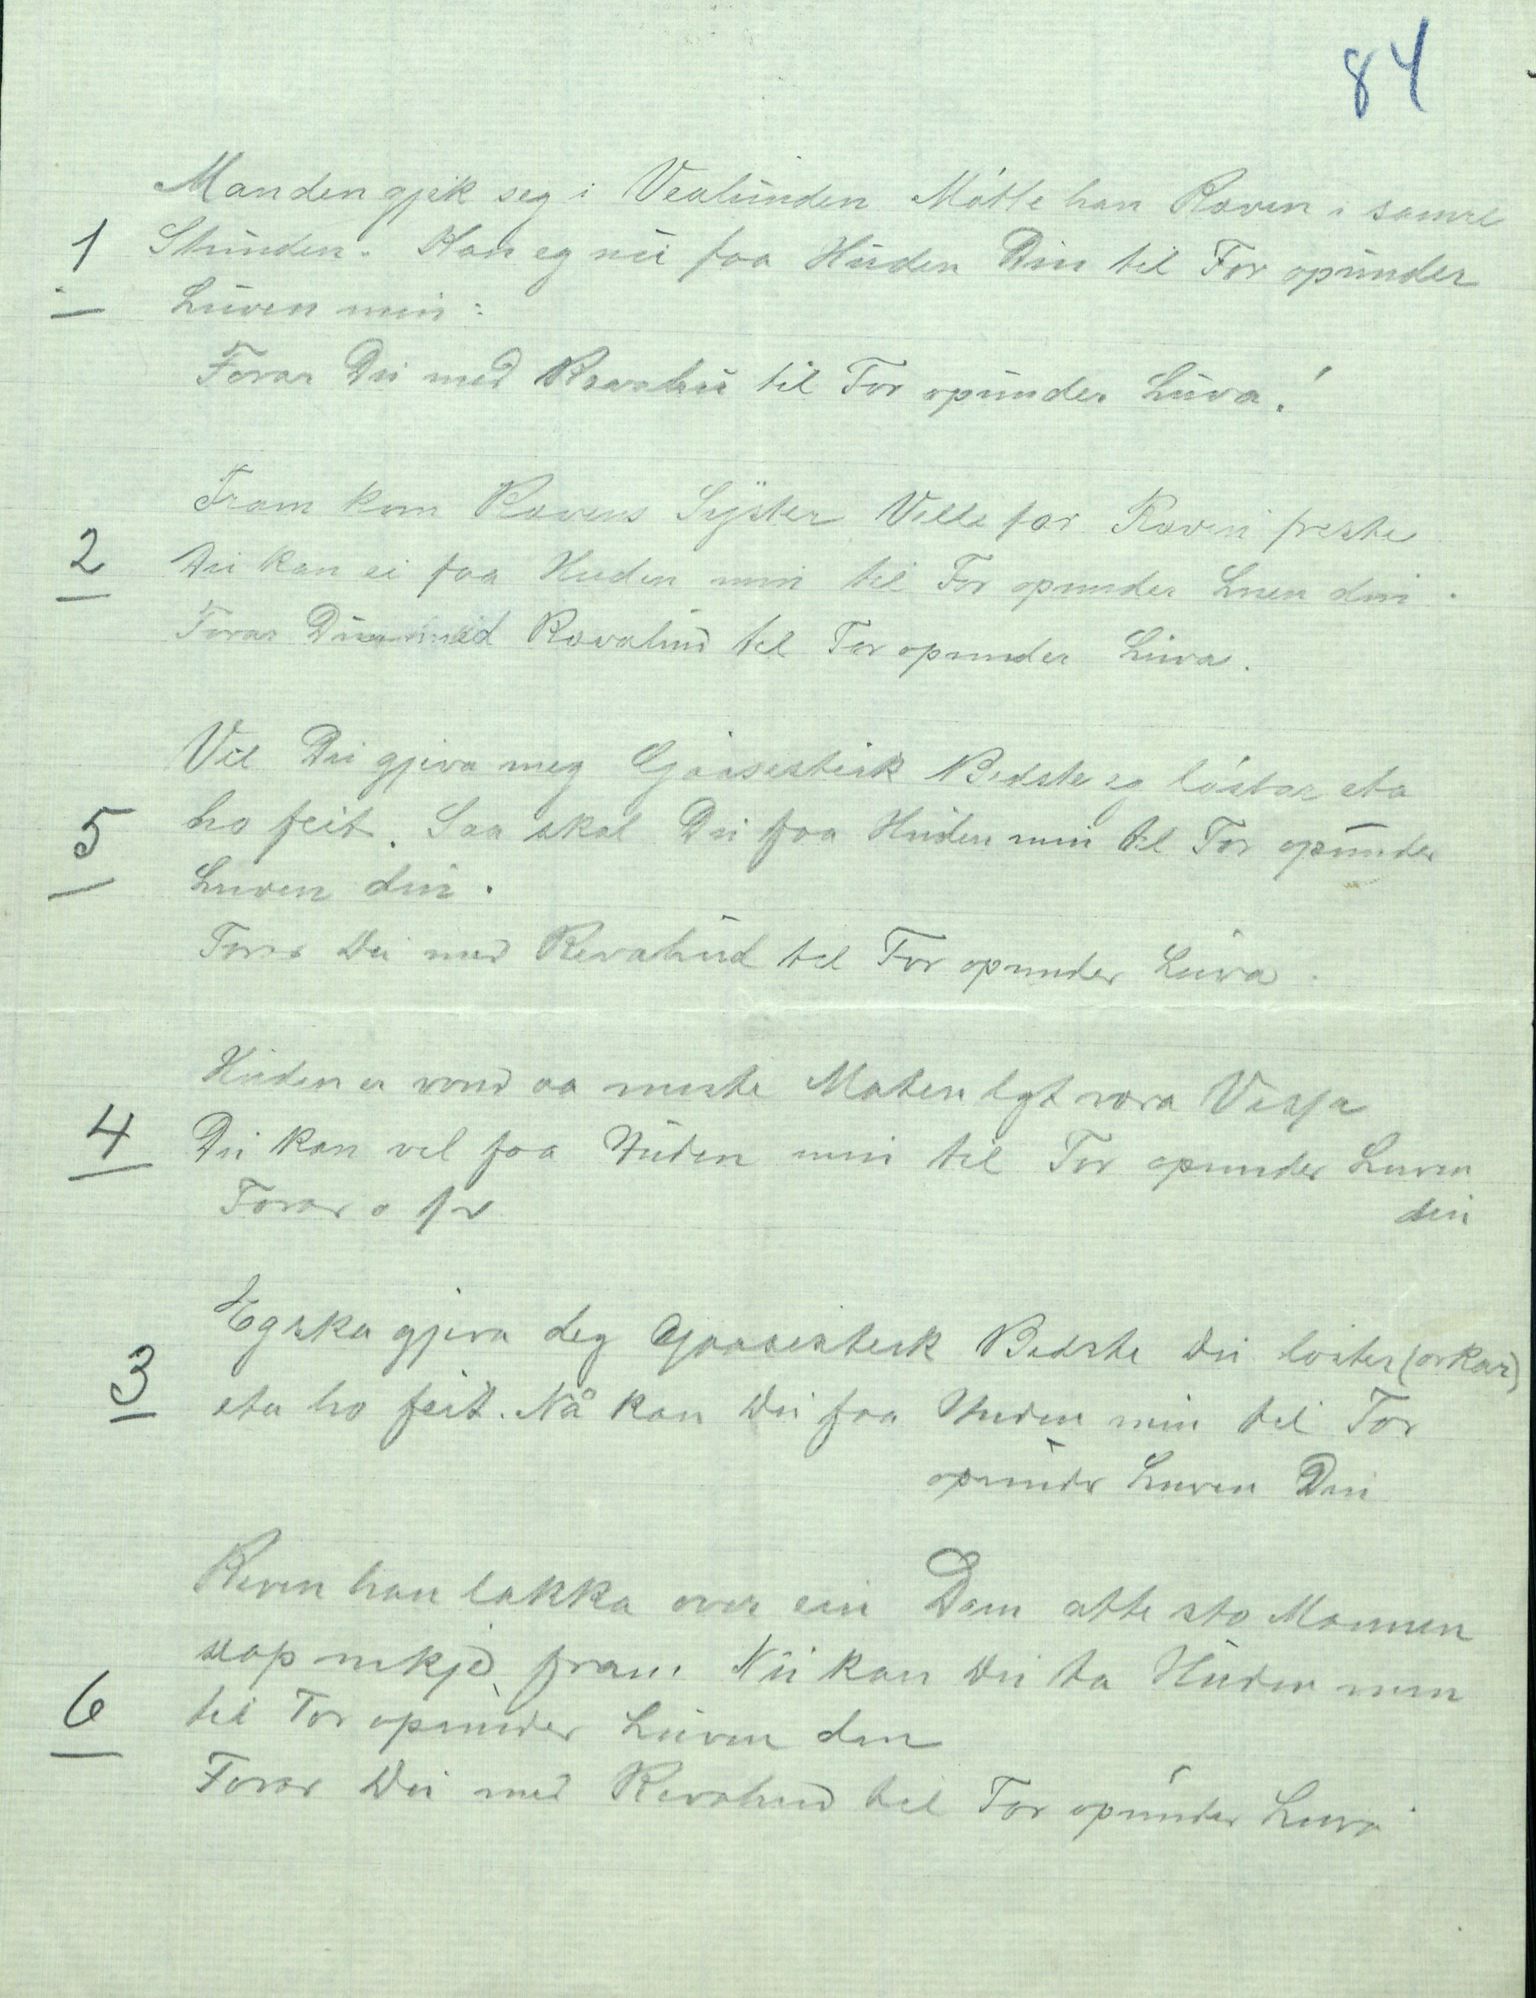 84
Manden gjik seg i Vealunden Møtte han Ræven i samme
1 Stunden. Kan eg nu faa Huden Din til For opunder
Luven min:
Forar Du med Rævahu til For opunder Luva!
Fram kom Rævens Syster Ville for Ræven freste
2 Du kan ei faa Huden min til For opunder Luen din.
Forar Du med Rævahud til For opunder Luva.
Vil Du gjeva meg Gaasesteik Bedste eg løstar eta
5 ho feit. Saa skal Du faa Huden min til For opunder
Luven din.
Forar Du med Revahud til For opunder Luva.
Huden er vond aa miste Maten lyt væra Visse
4 Du kan vel faa Huden min til For opunder Luven
din
Forar o s v
Eg ska gjeva deg Gaasesteik Bedste Du løster (orkar)
3 eta ho feit. Nå kan Du faa Huden min til For
opunder Luven Din
Reven han lakka over ein Dam atte sto Mannen
slap inkje fram. Nu kan Du ta Huden min
6 til For opunder Luven din
Forar Du med Revahud til For opunder Luva